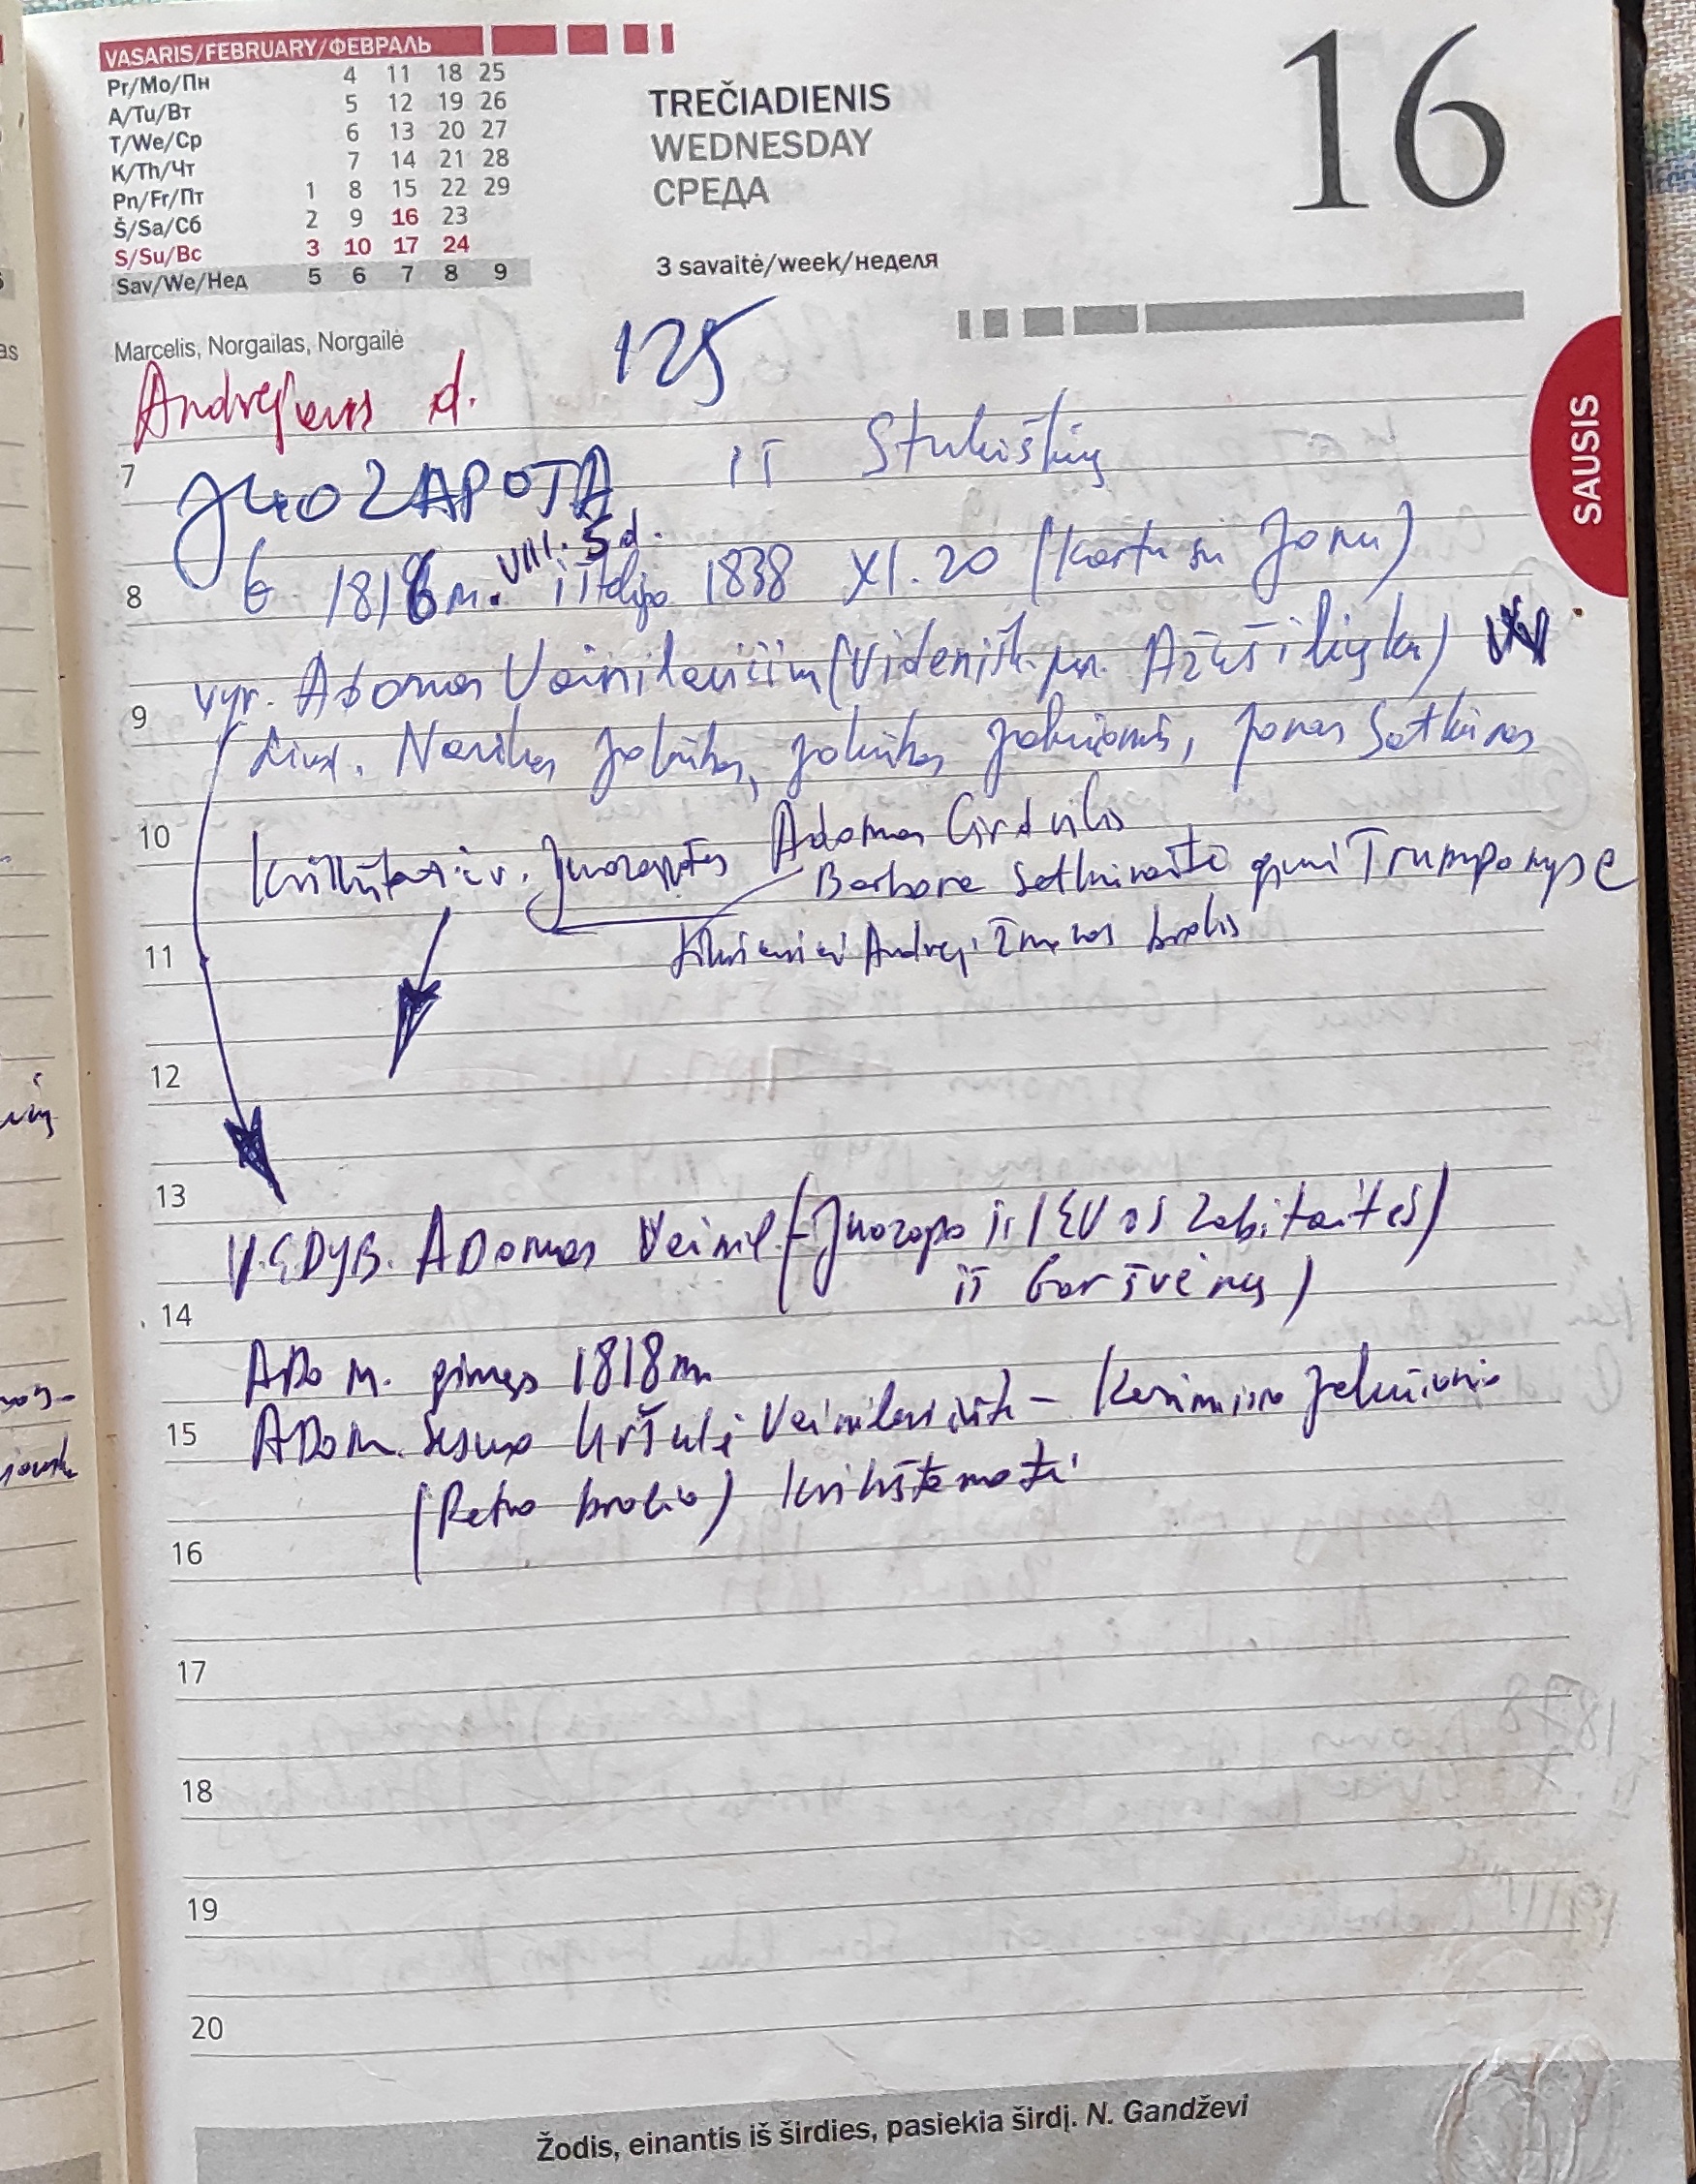 VASARIS/FEBRUARY/ФЕВРАЛЬ
Pr/Mo/Пн 4 11 18 25
A/Tu/Вт 5 12 19 26
T/We/Ср 6 13 20 27
K/Th/Чт 7 14 21 28
Pn/Fr/Пт 1 8 15 22 29
Š/Sa/Сб 2 9 16 23
S/Su/Вс 3 10 17 24
Sav/We/Нед 5 6 7 8 9
TREČIADIENIS
WEDNESDAY
СРЕДА
3 savaitė/week/неделя
16
SAUSIS
Marcelis, Norgailas, Norgailė
125
Andrejaus d.
7 JUOZAPOTA iš Stukiškių
VIII. 5 d.
8 G 1816 m. ištekėjo 1838 XI. 20 (Kartu su Jonu)
vyr. Adomas Vainilavičius (Videnišk. par. Ažušilių k.)
9 liud. Jokūbas, Jokūbas Jakučionis, Jonas Satkūnas
10 Juozapotos Adomas Girdvilis
Barbora Satkūnaitė gimi Trumponyse
11 Andrej. žmonos brolis
12
13 VEDYB. Adomas Vainil. (Juozapo ir IEVOS Zabitaitės)
iš Garšvėnų)
14
ADOM. gimęs 1818 m.
15 ADOM. sesuo Uršulė Vainilavičiūtė – Kazimiero Jakučionio
(Petro brolio) krikštamotė
16
17
18
19
20
Žodis, einantis iš širdies, pasiekia širdį. N. Gandževi